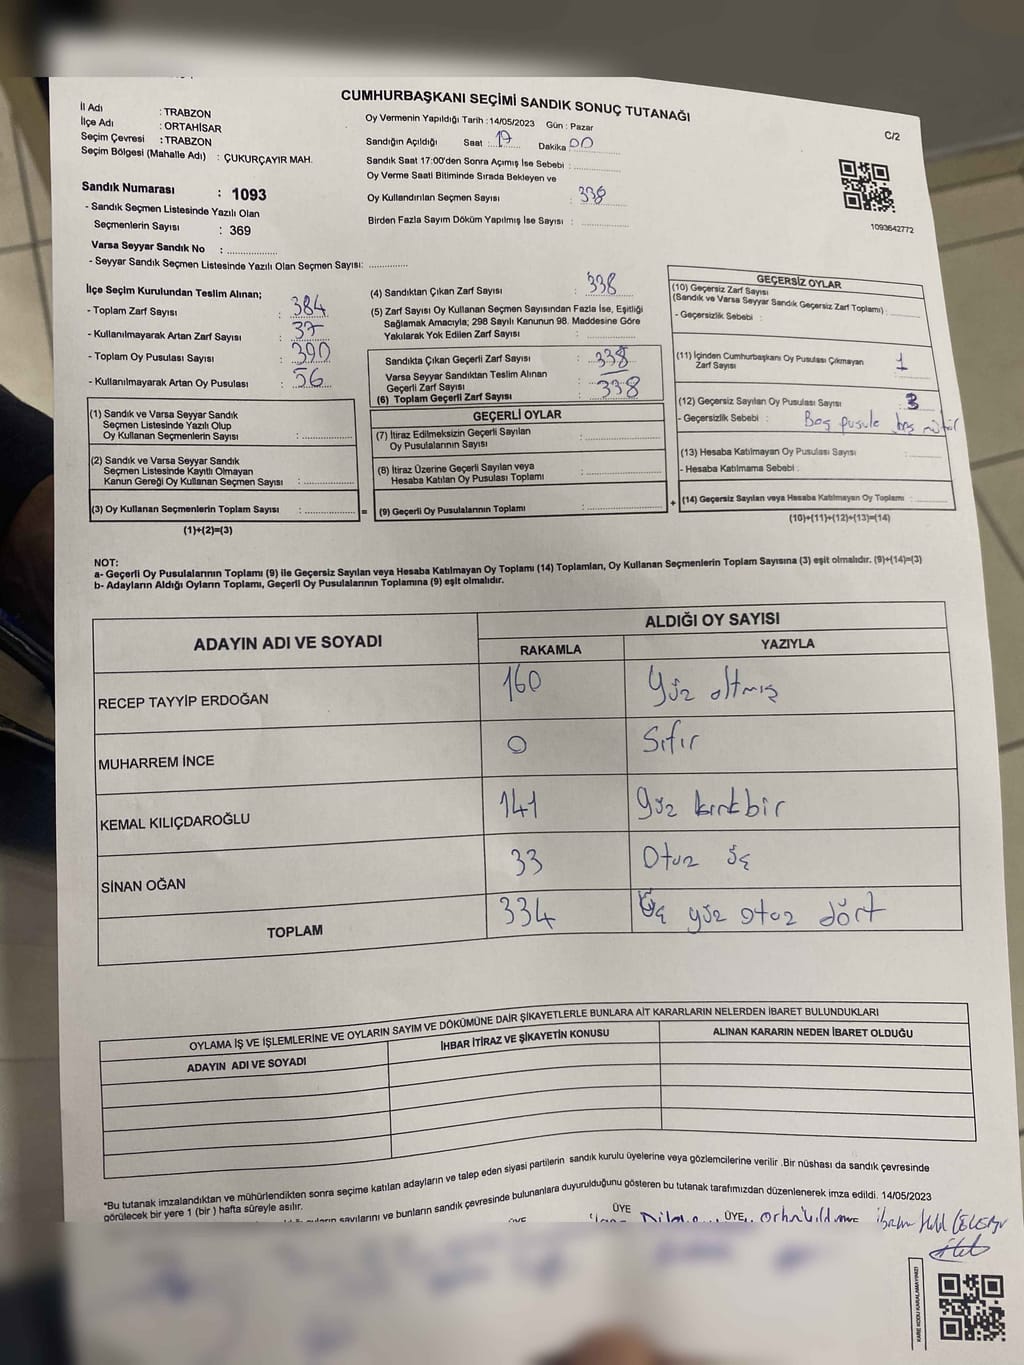 CUMHURBAŞKANI SEÇİMİ SANDIK SONUÇ TUTANAĞI
C/2
İl Adı : TRABZON
İlçe Adı : ORTAHİSAR
Seçim Çevresi : TRABZON
Seçim Bölgesi (Mahalle Adı) : ÇUKURÇAYIR MAH.
Sandık Numarası : 1093
- Sandık Seçmen Listesinde Yazılı Olan
Seçmenlerin Sayısı : 369
Varsa Seyyar Sandık No : ..............
- Seyyar Sandık Seçmen Listesinde Yazılı Olan Seçmen Sayısı: ............
Oy Vermenin Yapıldığı Tarih : 14/05/2023 Gün : Pazar
Sandığın Açıldığı Saat : 17 Dakika 00
Sandık Saat 17:00'den Sonra Açımış İse Sebebi :
Oy Verme Saati Bitiminde Sırada Bekleyen ve
Oy Kullandırılan Seçmen Sayısı : 338
Birden Fazla Sayım Döküm Yapılmış İse Sayısı :
1093642772
İlçe Seçim Kurulundan Teslim Alınan;
- Toplam Zarf Sayısı : 384
- Kullanılmayarak Artan Zarf Sayısı : 37
- Toplam Oy Pusulası Sayısı : 390
- Kullanılmayarak Artan Oy Pusulası : 56
(1) Sandık ve Varsa Seyyar Sandık
Seçmen Listesinde Yazılı Olup
Oy Kullanan Seçmenlerin Sayısı :
(2) Sandık ve Varsa Seyyar Sandık
Seçmen Listesinde Kayıtlı Olmayan
Kanun Gereği Oy Kullanan Seçmen Sayısı :
(3) Oy Kullanan Seçmenlerin Toplam Sayısı : =
(1)+(2)=(3)
(4) Sandıktan Çıkan Zarf Sayısı : 338
(5) Zarf Sayısı Oy Kullanan Seçmen Sayısından Fazla İse, Eşitliği
Sağlamak Amacıyla; 298 Sayılı Kanunun 98. Maddesine Göre
Yakılarak Yok Edilen Zarf Sayısı :
Sandıkta Çıkan Geçerli Zarf Sayısı : 338
Varsa Seyyar Sandıktan Teslim Alınan
Geçerli Zarf Sayısı :
(6) Toplam Geçerli Zarf Sayısı : 338
GEÇERLİ OYLAR
(7) İtiraz Edilmeksizin Geçerli Sayılan
Oy Pusulalarının Sayısı :
(8) İtiraz Üzerine Geçerli Sayılan veya
Hesaba Katılan Oy Pusulası Toplamı :
(9) Geçerli Oy Pusulalarının Toplamı : +
GEÇERSİZ OYLAR
(10) Geçersiz Zarf Sayısı
(Sandık ve Varsa Seyyar Sandık Geçersiz Zarf Toplamı) :
- Geçersizlik Sebebi :
(11) İçinden Cumhurbaşkanı Oy Pusulası Çıkmayan
Zarf Sayısı : 1
(12) Geçersiz Sayılan Oy Pusulası Sayısı : 3
- Geçersizlik Sebebi : Boş pusula
(13) Hesaba Katılmayan Oy Pusulası Sayısı :
- Hesaba Katılmama Sebebi :
(14) Geçersiz Sayılan veya Hesaba Katılmayan Oy Toplamı :
(10)+(11)+(12)+(13)=(14)
NOT:
a- Geçerli Oy Pusulalarının Toplamı (9) ile Geçersiz Sayılan veya Hesaba Katılmayan Oy Toplamı (14) Toplamları, Oy Kullanan Seçmenlerin Toplam Sayısına (3) eşit olmalıdır. (9)+(14)=(3)
b- Adayların Aldığı Oyların Toplamı, Geçerli Oy Pusulalarının Toplamına (9) eşit olmalıdır.
ADAYIN ADI VE SOYADI ALDIĞI OY SAYISI
RAKAMLA YAZIYLA
RECEP TAYYİP ERDOĞAN 160 Yüz altmış
MUHARREM İNCE 0 Sıfır
KEMAL KILIÇDAROĞLU 141 yüz kırkbir
SİNAN OĞAN 33 Otuz üç
TOPLAM 334 Üç yüz otuz dört
OYLAMA İŞ VE İŞLEMLERİNE VE OYLARIN SAYIM VE DÖKÜMÜNE DAİR ŞİKAYETLERLE BUNLARA AİT KARARLARIN NELERDEN İBARET BULUNDUKLARI
ADAYIN ADI VE SOYADI İHBAR İTİRAZ VE ŞİKAYETİN KONUSU ALINAN KARARIN NEDEN İBARET OLDUĞU
*Bu tutanak imzalandıktan ve mühürlendikten sonra seçime katılan adayların ve talep eden siyasi partilerin sandık kurulu üyelerine veya gözlemcilerine verilir .Bir nüshası da sandık çevresinde
görülecek bir yere 1 (bir ) hafta süreyle asılır.
sayılarını ve bunların sandık çevresinde bulunanlara duyurulduğunu gösteren bu tutanak tarafımızdan düzenlenerek imza edildi. 14/05/2023
ÜYE ÜYE ÜYE
KARE KODU KARALAMAYINIZ!